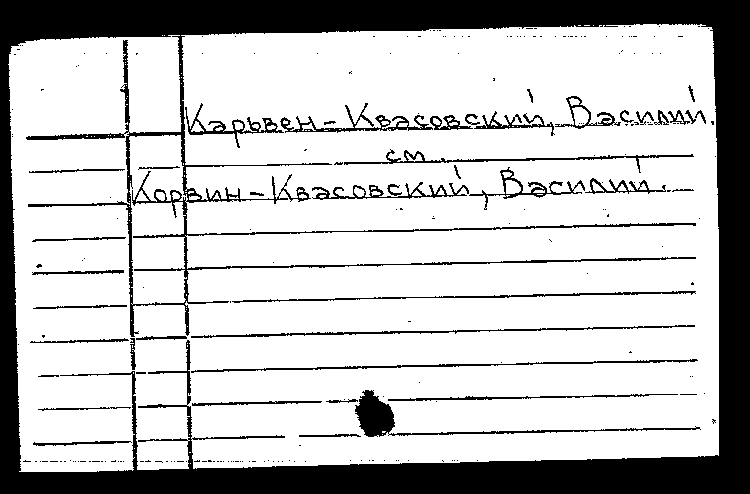 Карьвен-Квасовский, Василий.
см.
Корвин-Квасовский, Василий.